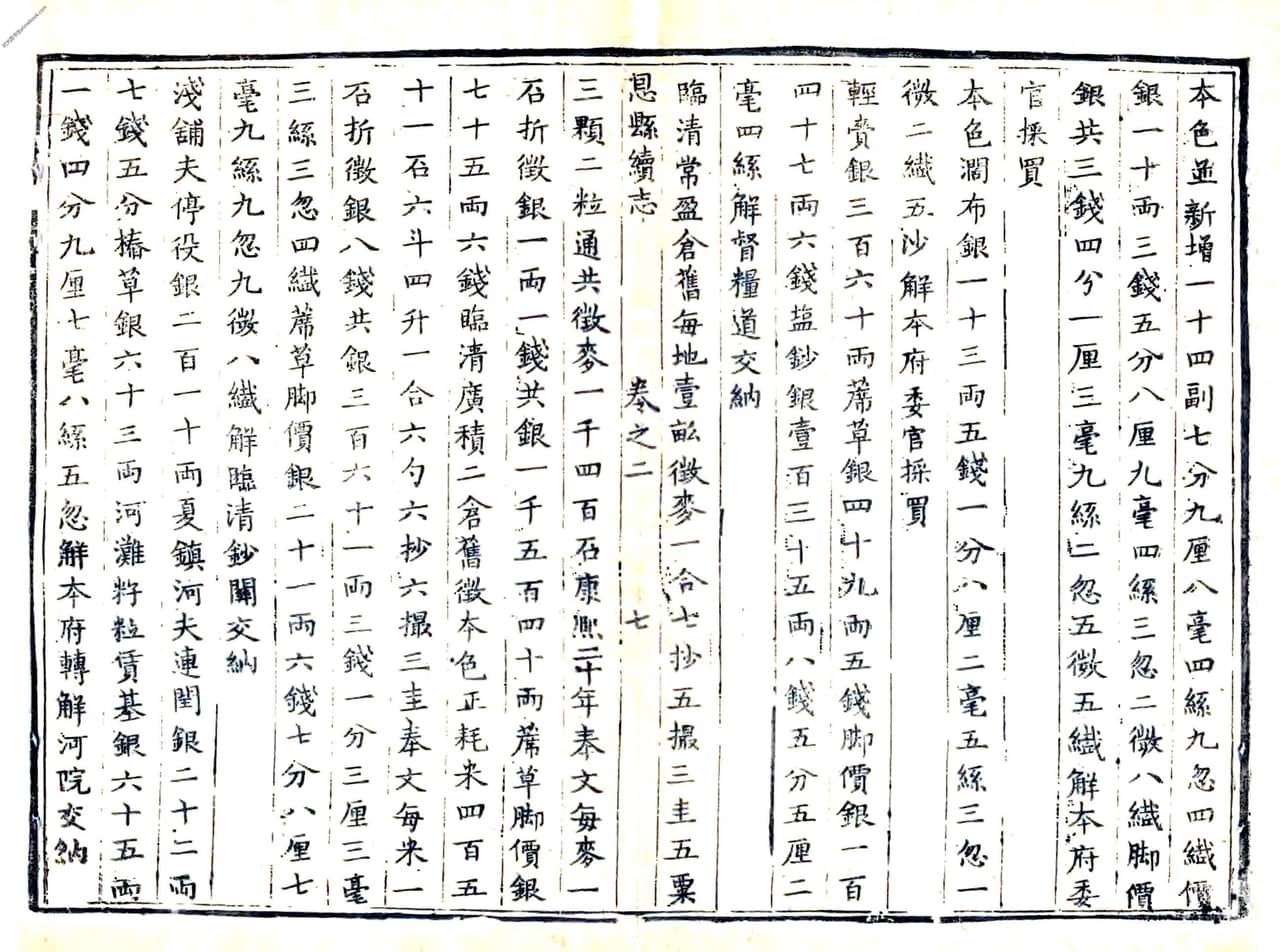 本色並新增一十四副七分九厘八毫四絲九忽四纎價
銀一十両三錢五分八厘九毫四絲三忽二微八纎脚價
銀共三錢四分一厘三毫九絲二忽五微五纎解本府委
官採買
本色濶布銀一十三両五錢一分八厘二毫五絲三忽一
微二纎五沙解本府委官採買
輕賫銀三百六十両蓆草銀四十九両五錢脚價銀一百
四十七両六錢塩鈔銀壹百三十五両八錢五分五厘二
毫四絲解督糧道交納
臨清常盈倉舊每地壹畝徵麥一合七抄五撮三圭五粟
恩縣續志 卷之二 七
三顆二粒通共徵麥一千四百石康熈二十年奉文每麥一
石折徵銀一両一錢共銀一千五百四十両蓆草脚價銀
七十五両六錢臨清廣積二倉舊徵本色正耗米四百五
十一石六斗四升一合六勺六抄六撮三圭奉文每米一
石折徵銀八錢共銀三百六十一両三錢一分三厘三毫
三絲三忽四纎蓆草脚價銀二十一両六錢七分八厘七
毫九絲九忽九微八纎解臨清鈔關交納
淺舖夫停役銀二百一十両夏鎮河夫連閏銀二十二両
七錢五分樁草銀六十三両河灘籽粒賃基銀六十五両
一錢四分九厘七毫八絲五忽解本府轉解河院交納